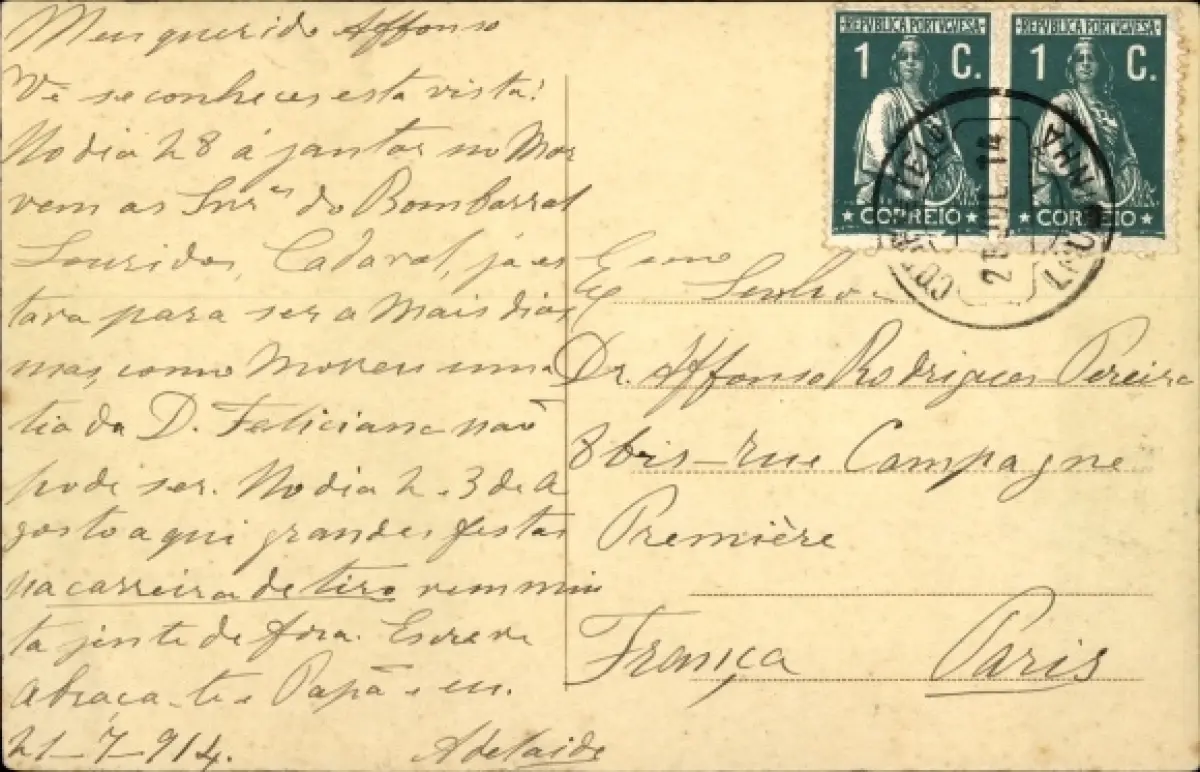 Meu querido Affonso
Vê se conheces esta vista!
No dia 28 á jantar no Mor
vem as Snr.as do Bombarral
Lourides, Cadaval, já es
tava para ser a mais dias
mas, como morreu uma
tia da D. Feliciana não
pode ser. No dia 2 e 3 de A
gosto aqui grandes festas
na carreira de tiro vem mui
ta jente de fóra. Escreve
Abraça-te o Papá e eu.
21-7-914. Adelaide
REPVBLICA PORTVGVESA
1 C.
CORREIO
REPVBLICA PORTVGVESA
1 C.
CORREIO
JUL 14
Exmo
Senhor
Dr. Affonso Rodrigues Pereira
8 bis-rue Campagne
Première
França Paris